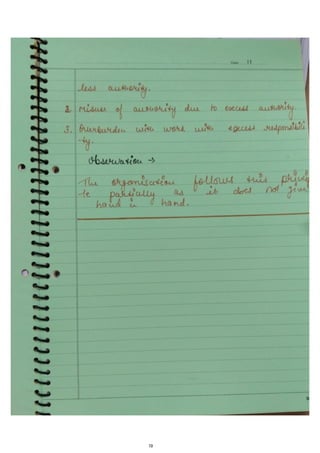 Date 11
less authority.
2. misuse of authority due to excess authority.
3. Overburden with work with excess responsibili
-ty.
Observation →
The organisation follows this princip
-le partially as it does not given
hand in hand.
73